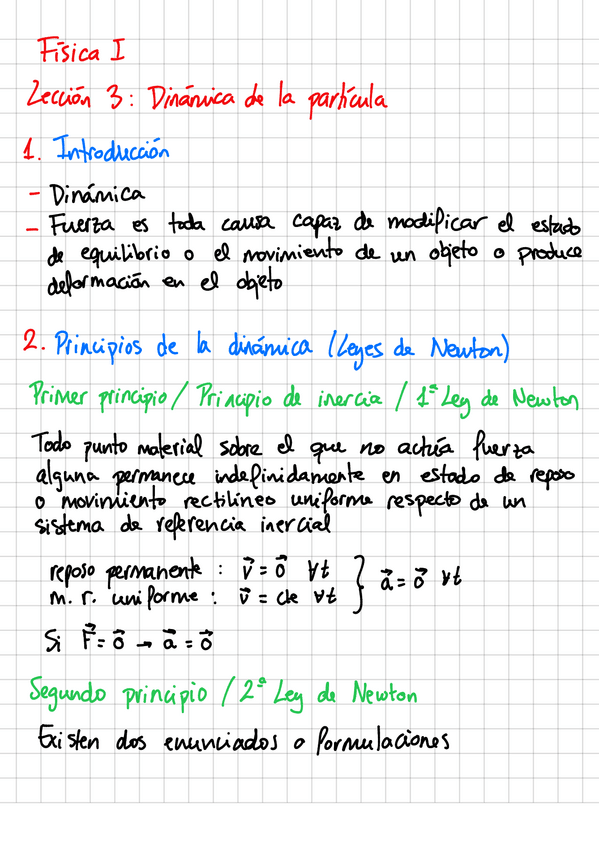 Física I
Lección 3: Dinámica de la partícula
1. Introducción
- Dinámica
- Fuerza es toda causa capaz de modificar el estado
de equilibrio o el movimiento de un objeto o produce
deformación en el objeto
2. Principios de la dinámica (Leyes de Newton)
Primer principio / Principio de inercia / 1ª Ley de Newton
Todo punto material sobre el que no actúa fuerza
alguna permanece indefinidamente en estado de reposo
o movimiento rectilíneo uniforme respecto de un
sistema de referencia inercial
reposo permanente : v⃗ = 0⃗ ∀t
m. r. uniforme : v⃗ = cte ∀t } a⃗ = 0⃗ ∀t
Si F⃗ = 0⃗ → a⃗ = 0⃗
Segundo principio / 2ª Ley de Newton
Existen dos enunciados o formulaciones